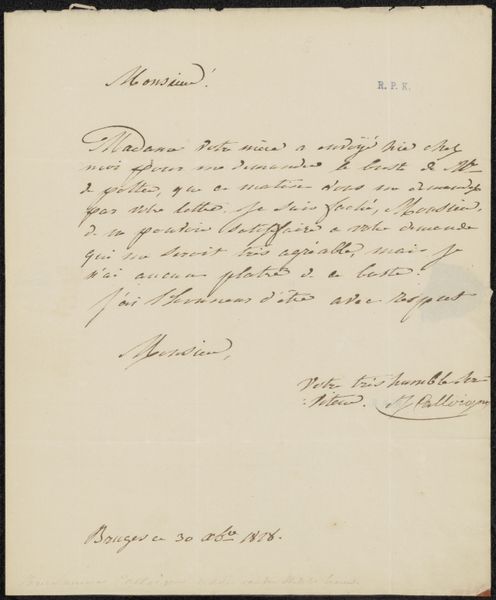 Monsieur!
R. P. K.
Madame votre mère a envoyé hier chez
moi pour me demander le buste de Mr
de potter, que ce matin vous me demandez
par votre lettre. je suis faché, Monsieur,
de ne pouvoir satisfaire a votre demande
qui me seroit très agréable, mais je
n'ai aucun platre de ce buste.
j'ai l'honneur d'être avec respect
Monsieur,
Votre très humble ser-
:viteur. Calloigne
Bruges ce 30 xbre 1828.